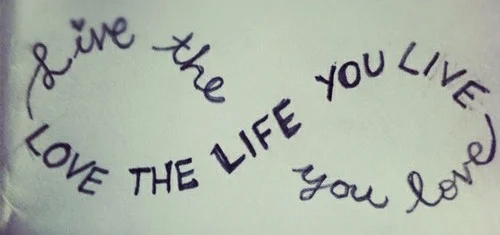 Live the
LIFE
you love
LOVE THE LIFE YOU LIVE